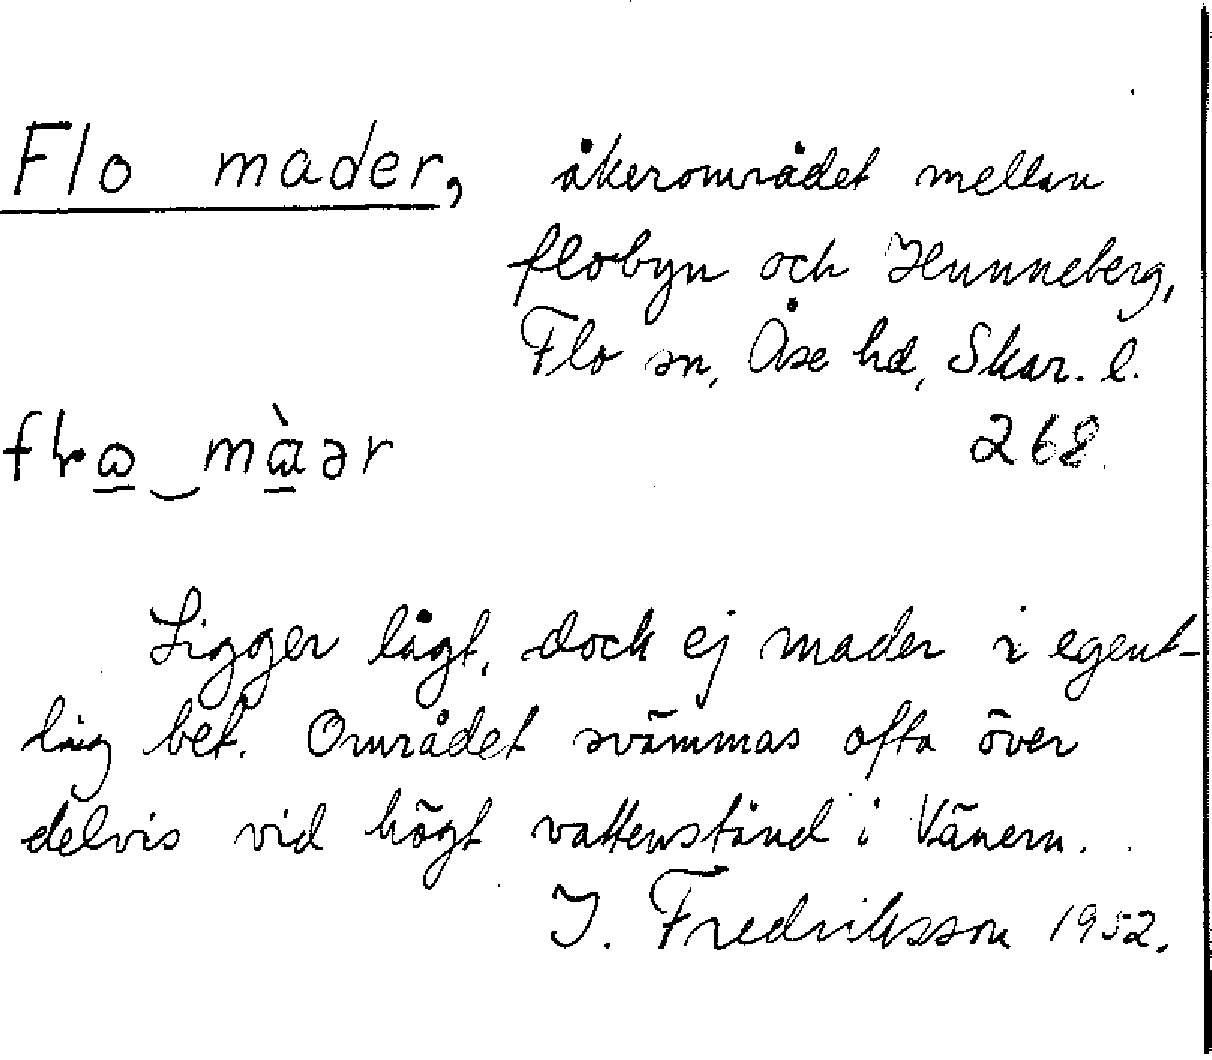 Flo mader, åkerområdet mellan
flobyn och Hunneberg,
Flo sn, Åse hd, Skar. l.
268.
màər
Ligger lågt, dock ej mader i egent-
lig bet. Området svämmas ofta över
delvis vid högt vattenstånd i Vänern.
J. Fredriksson 1952.